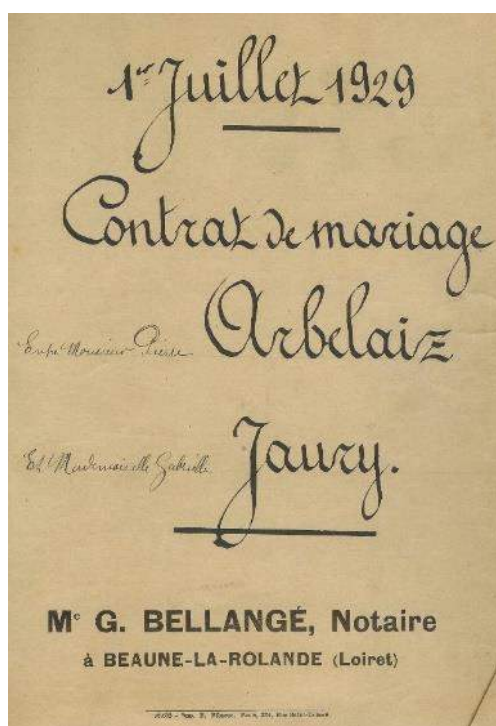 1er Juillet 1929
Contrat de mariage
Entre Monsieur Pierre Arbelaiz
Et Mademoiselle Gabrielle Jaury.
Me G. BELLANGÉ, Notaire
à BEAUNE-LA-ROLANDE (Loiret)